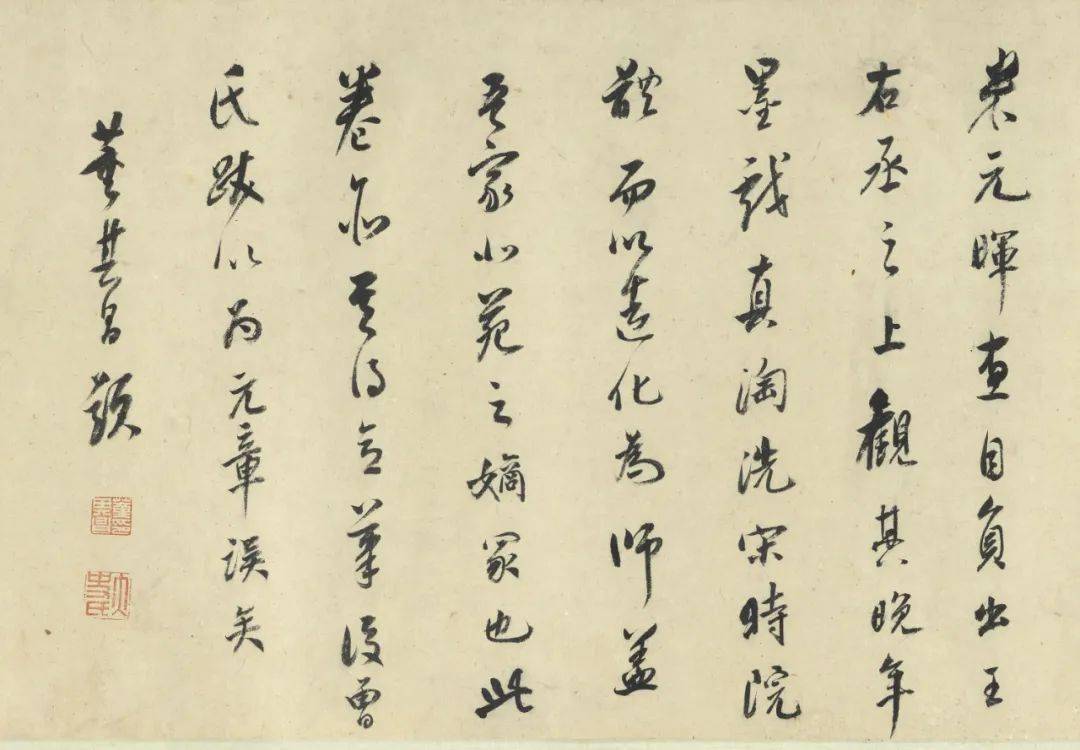 米元暉畫自負出王
右丞之上觀其晚年
墨戲真淘洗宋時院
體而以造化為師蓋
吾家北苑之嫡冢也此
卷亦其得意筆後曾
氏跋以為元章誤矣
董其昌題
太史氏